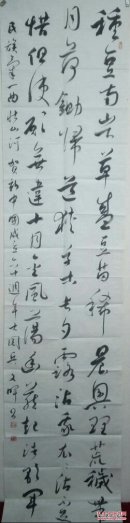 種豆南山下草盛豆苗稀晨興理荒穢帶
月荷鋤歸道狹草木長夕露沾我衣衣沾不足
惜但使願無違十月金風蕩
民族山河賀新中國成立六十週年